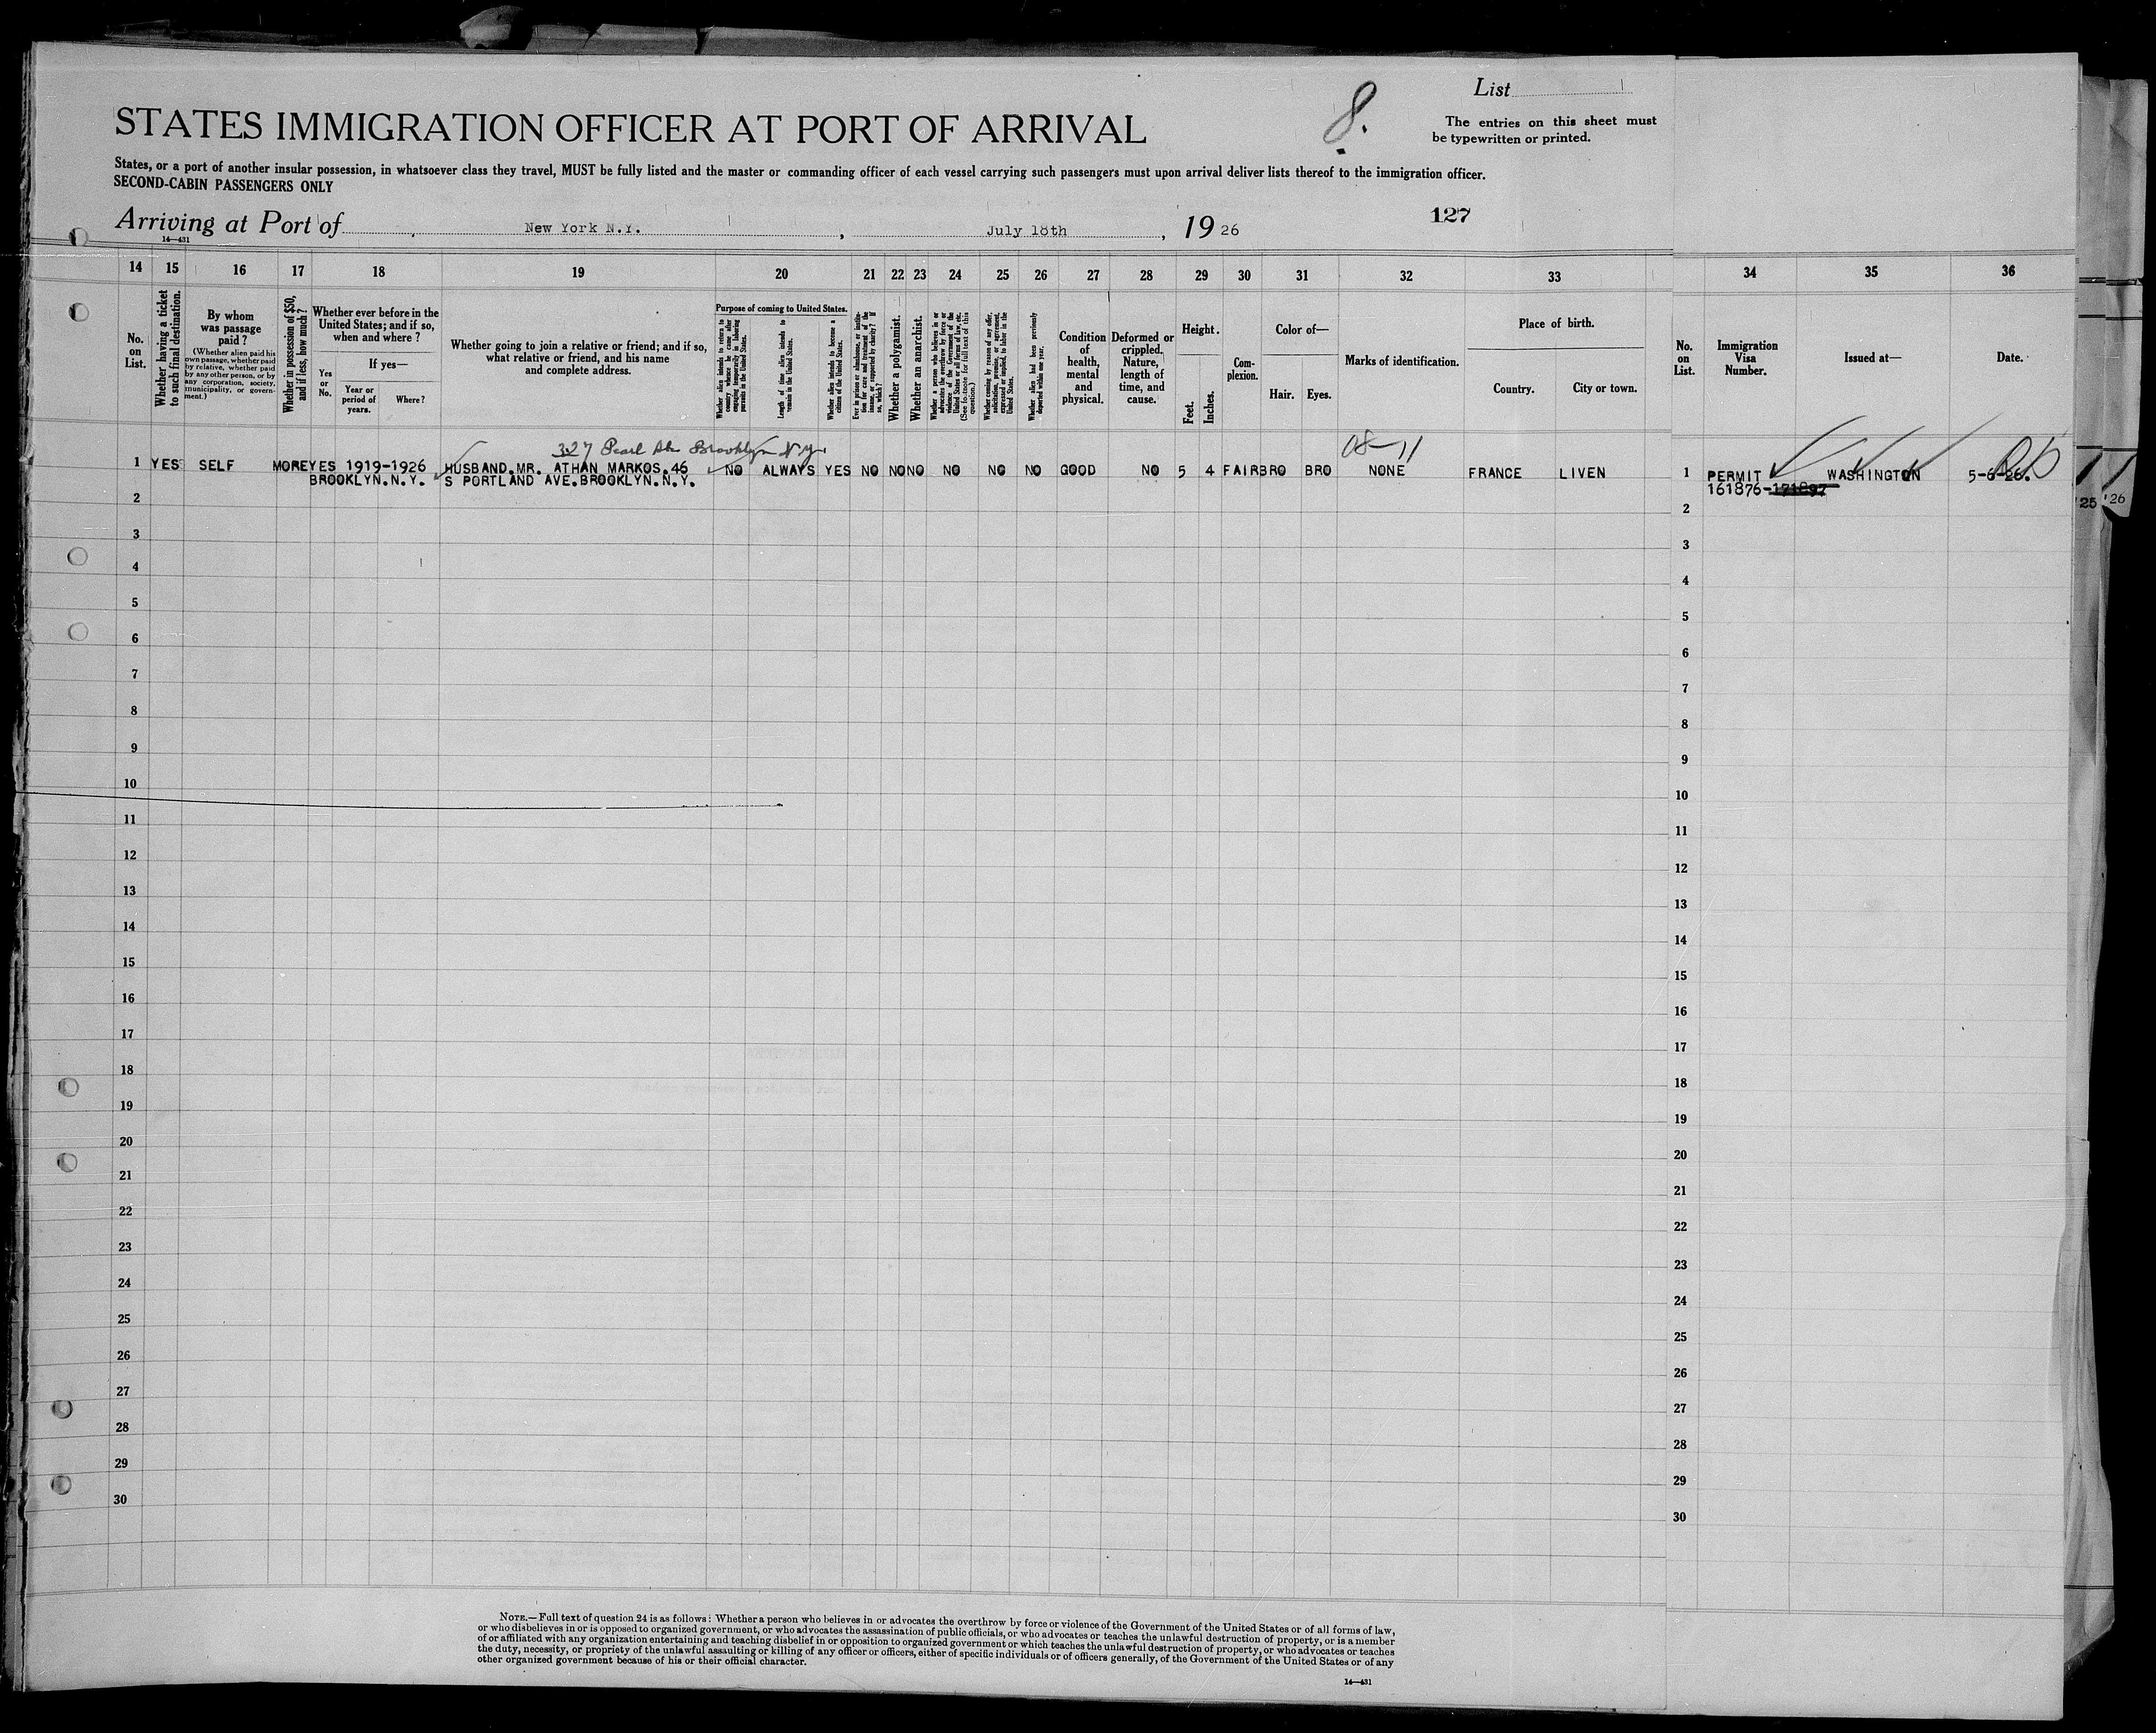 List
8.
The entries on this sheet must
be typewritten or printed.
STATES IMMIGRATION OFFICER AT PORT OF ARRIVAL
States, or a port of another insular possession, in whatsoever class they travel, MUST be fully listed and the master or commanding officer of each vessel carrying such passengers must upon arrival deliver lists thereof to the immigration officer.
SECOND-CABIN PASSENGERS ONLY
Arriving at Port of New York N.Y. , July 18th , 19 26
127
14—431
14 15 16 17 18 19 20 21 22 23 24 25 26 27 28 29 30 31 32 33 34 35 36
No. on List.
Whether having a ticket to such final destination.
By whom was passage paid?
(Whether alien paid his own passage, whether paid by relative, whether paid by any other person, or by any corporation, society, municipality, or government.)
Whether in possession of $50, and if less, how much?
Whether ever before in the United States; and if so, when and where?
Yes or No.
If yes—
Year or period of years.
Where?
Whether going to join a relative or friend; and if so, what relative or friend, and his name and complete address.
Purpose of coming to United States.
Whether alien intends to return to country whence he came after engaging temporarily in laboring pursuits in the United States.
Length of time alien intends to remain in the United States.
Whether alien intends to become a citizen of the United States.
Ever in prison or almshouse, or institution for care and treatment of the insane, or supported by charity? If so, which?
Whether a polygamist.
Whether an anarchist.
Whether a person who believes in or advocates the overthrow by force or violence of the Government of the United States or all forms of law, etc. (See footnote for full text of this question.)
Whether coming by reason of any offer, solicitation, promise, or agreement, expressed or implied, to labor in the United States.
Whether alien had been previously deported within one year.
Condition of health, mental and physical.
Deformed or crippled. Nature, length of time, and cause.
Height.
Feet.
Inches.
Complexion.
Color of—
Hair.
Eyes.
Marks of identification.
Place of birth.
Country.
City or town.
No. on List.
Immigration Visa Number.
Issued at—
Date.
327 Pearl St. Brooklyn N.Y.
1 YES SELF MORE YES 1919-1926 HUSBAND.MR. ATHAN MARKOS.46 NO ALWAYS YES NO NO NO NO NO NO GOOD NO 5 4 FAIR BRO BRO NONE FRANCE LIVEN 1 PERMIT WASHINGTON 5-6-26.
BROOKLYN.N.Y. S PORTLAND AVE.BROOKLYN.N.Y. 161876-171897
25 '26
2 2
3 3
4 4
5 5
6 6
7 7
8 8
9 9
10 10
11 11
12 12
13 13
14 14
15 15
16 16
17 17
18 18
19 19
20 20
21 21
22 22
23 23
24 24
25 25
26 26
27 27
28 28
29 29
30 30
NOTE.—Full text of question 24 is as follows: Whether a person who believes in or advocates the overthrow by force or violence of the Government of the United States or of all forms of law,
or who disbelieves in or is opposed to organized government, or who advocates the assassination of public officials, or who advocates or teaches the unlawful destruction of property, or is a member
of or affiliated with any organization entertaining and teaching disbelief in or opposition to organized government or which teaches the unlawful destruction of property, or who advocates or teaches
the duty, necessity, or propriety of the unlawful assaulting or killing of any officer or officers, either of specific individuals or of officers generally, of the Government of the United States or of any
other organized government because of his or their official character.
14—431